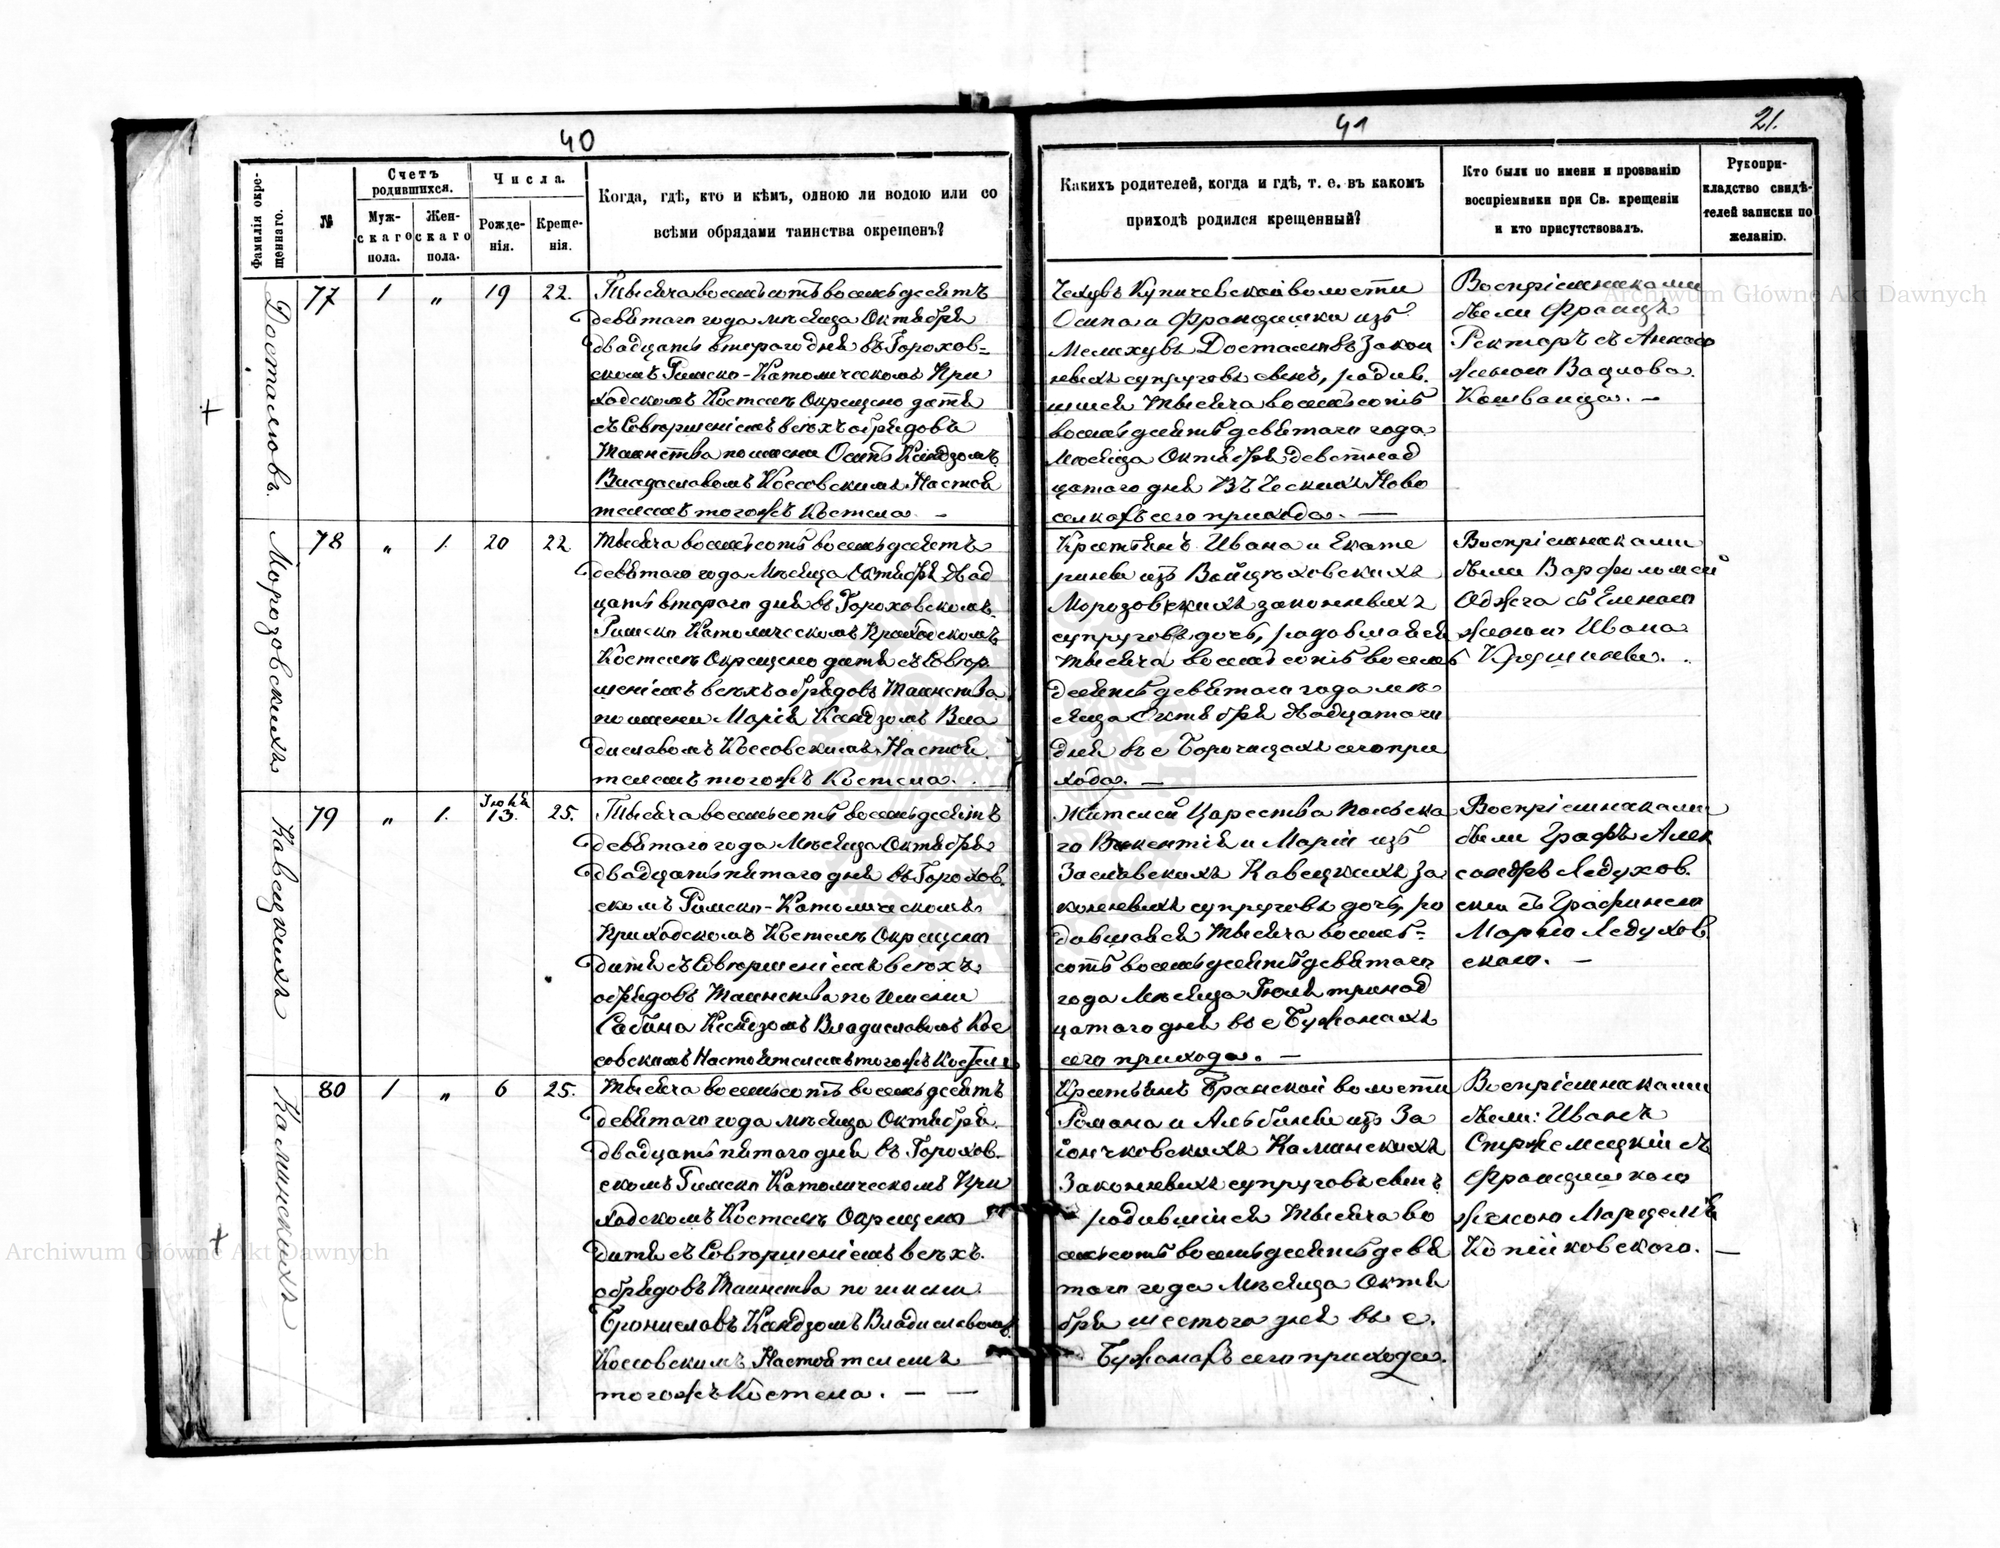 40
Фамилія окре-
щеннаго.
№
Счетъ
родившихся.
Муж-
скаго
пола.
Жен-
скаго
пола.
Числа.
Рожде-
нія.
Креще-
нія.
Когда, гдѣ, кто и кѣмъ, одною ли водою или со
всѣми обрядами таинства окрещенъ?
Досталювъ
77
1
"
19
22.
Тысяча восемьсотъ восемьдесятъ
девятаго года мѣсяца Октября
двадцать втораго дня въ Горохов-
скомъ Римско-Католическомъ При
ходскомъ Костелѣ Окрещено дитя
съ Совершеніемъ всѣхъ обрядовъ
Таинства по имени Осипъ Ксендзомъ
Владиславомъ Коссовскимъ Настоя
телемъ тогожъ Костела. -
Морозовскихъ
78
"
1.
20
22
Тысяча восемьсотъ восемьдесятъ
девятаго года Мѣсяца Октября двад
цать втораго дня въ Гороховскомъ
Римско Католическомъ Приходскомъ
Костелѣ Окрещено дитя съ Совер
шеніемъ всѣхъ обрядовъ Таинства
по имени Марія Ксендзомъ Вла
диславомъ Коссовскимъ Настоя
телемъ тогожъ Костела.
Кавецкихъ
79
"
1.
Іюля
13.
25.
Тысяча восемьсотъ восемьдесятъ
девятаго года Мѣсяца Октября
двадцать пятаго дня въ Горохов
скомъ Римско-Католическомъ
Приходскомъ Костелѣ Окрещено
дитя съ Совершеніемъ всѣхъ
обрядовъ Таинства по имени
Сабина Ксендзомъ Владиславомъ Кос
совскимъ Настоятелемъ тогожъ Костела
Каминскихъ
80
1
"
6
25.
Тысяча восемьсотъ восемьдесятъ
девятаго года мѣсяца Октября
двадцать пятаго дня въ Горохов-
скомъ Римско Католическомъ При
ходскомъ Костелѣ Окрещено
дитя съ Совершеніемъ всѣхъ
обрядовъ Таинства по имени
Брониславъ Ксендзомъ Владиславомъ
Коссовскимъ Настоятелемъ
тогожъ Костела. — —
41
21.
Какихъ родителей, когда и гдѣ, т. е. въ какомъ
приходѣ родился крещенный?
Кто были по имени и прозванію
воспріемники при Св. крещеніи
и кто присутствовалъ.
Рукопри-
кладство свидѣ-
телей записки по
желанію.
Чеховъ Купичевской волости
Осипа и Францишки изъ
Досталювъ закон
ныхъ супруговъ сынъ, родив
шійся тысяча восемьсотъ
восемьдесятъ девятаго года
Мѣсяца Октября девятнад
цатаго дня въ Ческихъ Ново
селкахъ сего прихода. —
Воспріемниками
были Францъ
Ректоръ съ Анною
женою Вацлова
—
Крестьянъ Ивана и Екате
рины изъ Войцѣховскихъ
Морозовскихъ законныхъ
супруговъ дочь, родившаяся
тысяча восемьсотъ восемь
десятъ девятаго года мѣ
сяца Октября двадцатаго
дня въ с Борочицахъ сего при
хода. —
Воспріемниками
были Варфоломей
съ Еленою
женою Ивана
Жителей Царства Польска
го Викентія и Маріи изъ
Заславскихъ Кавецкихъ за
конныхъ супруговъ дочь, ро
дившаяся тысяча восемь-
сотъ восемьдесятъ девятаго
года Мѣсяца Іюля тринад
цатаго дня въ с Бужанахъ
сего прихода. —
Воспріемниками
были Графъ Алек
сандръ Ледухов
скій съ Графинею
Маріею Ледухов
скою. —
Крестьянъ волости
Романа и Альбины изъ За
іончковскихъ Каминскихъ
Законныхъ супруговъ сынъ
родившійся тысяча во
семьсотъ восемьдесятъ девя
таго года Мѣсяца Октя
бря шестого дня въ с.
Бужанахъ сего прихода.
Воспріемниками
были: Иванъ
Стржемецкій съ
Францишкою
женою
—
Archiwum Główne Akt Dawnych
Archiwum Główne Akt Dawnych